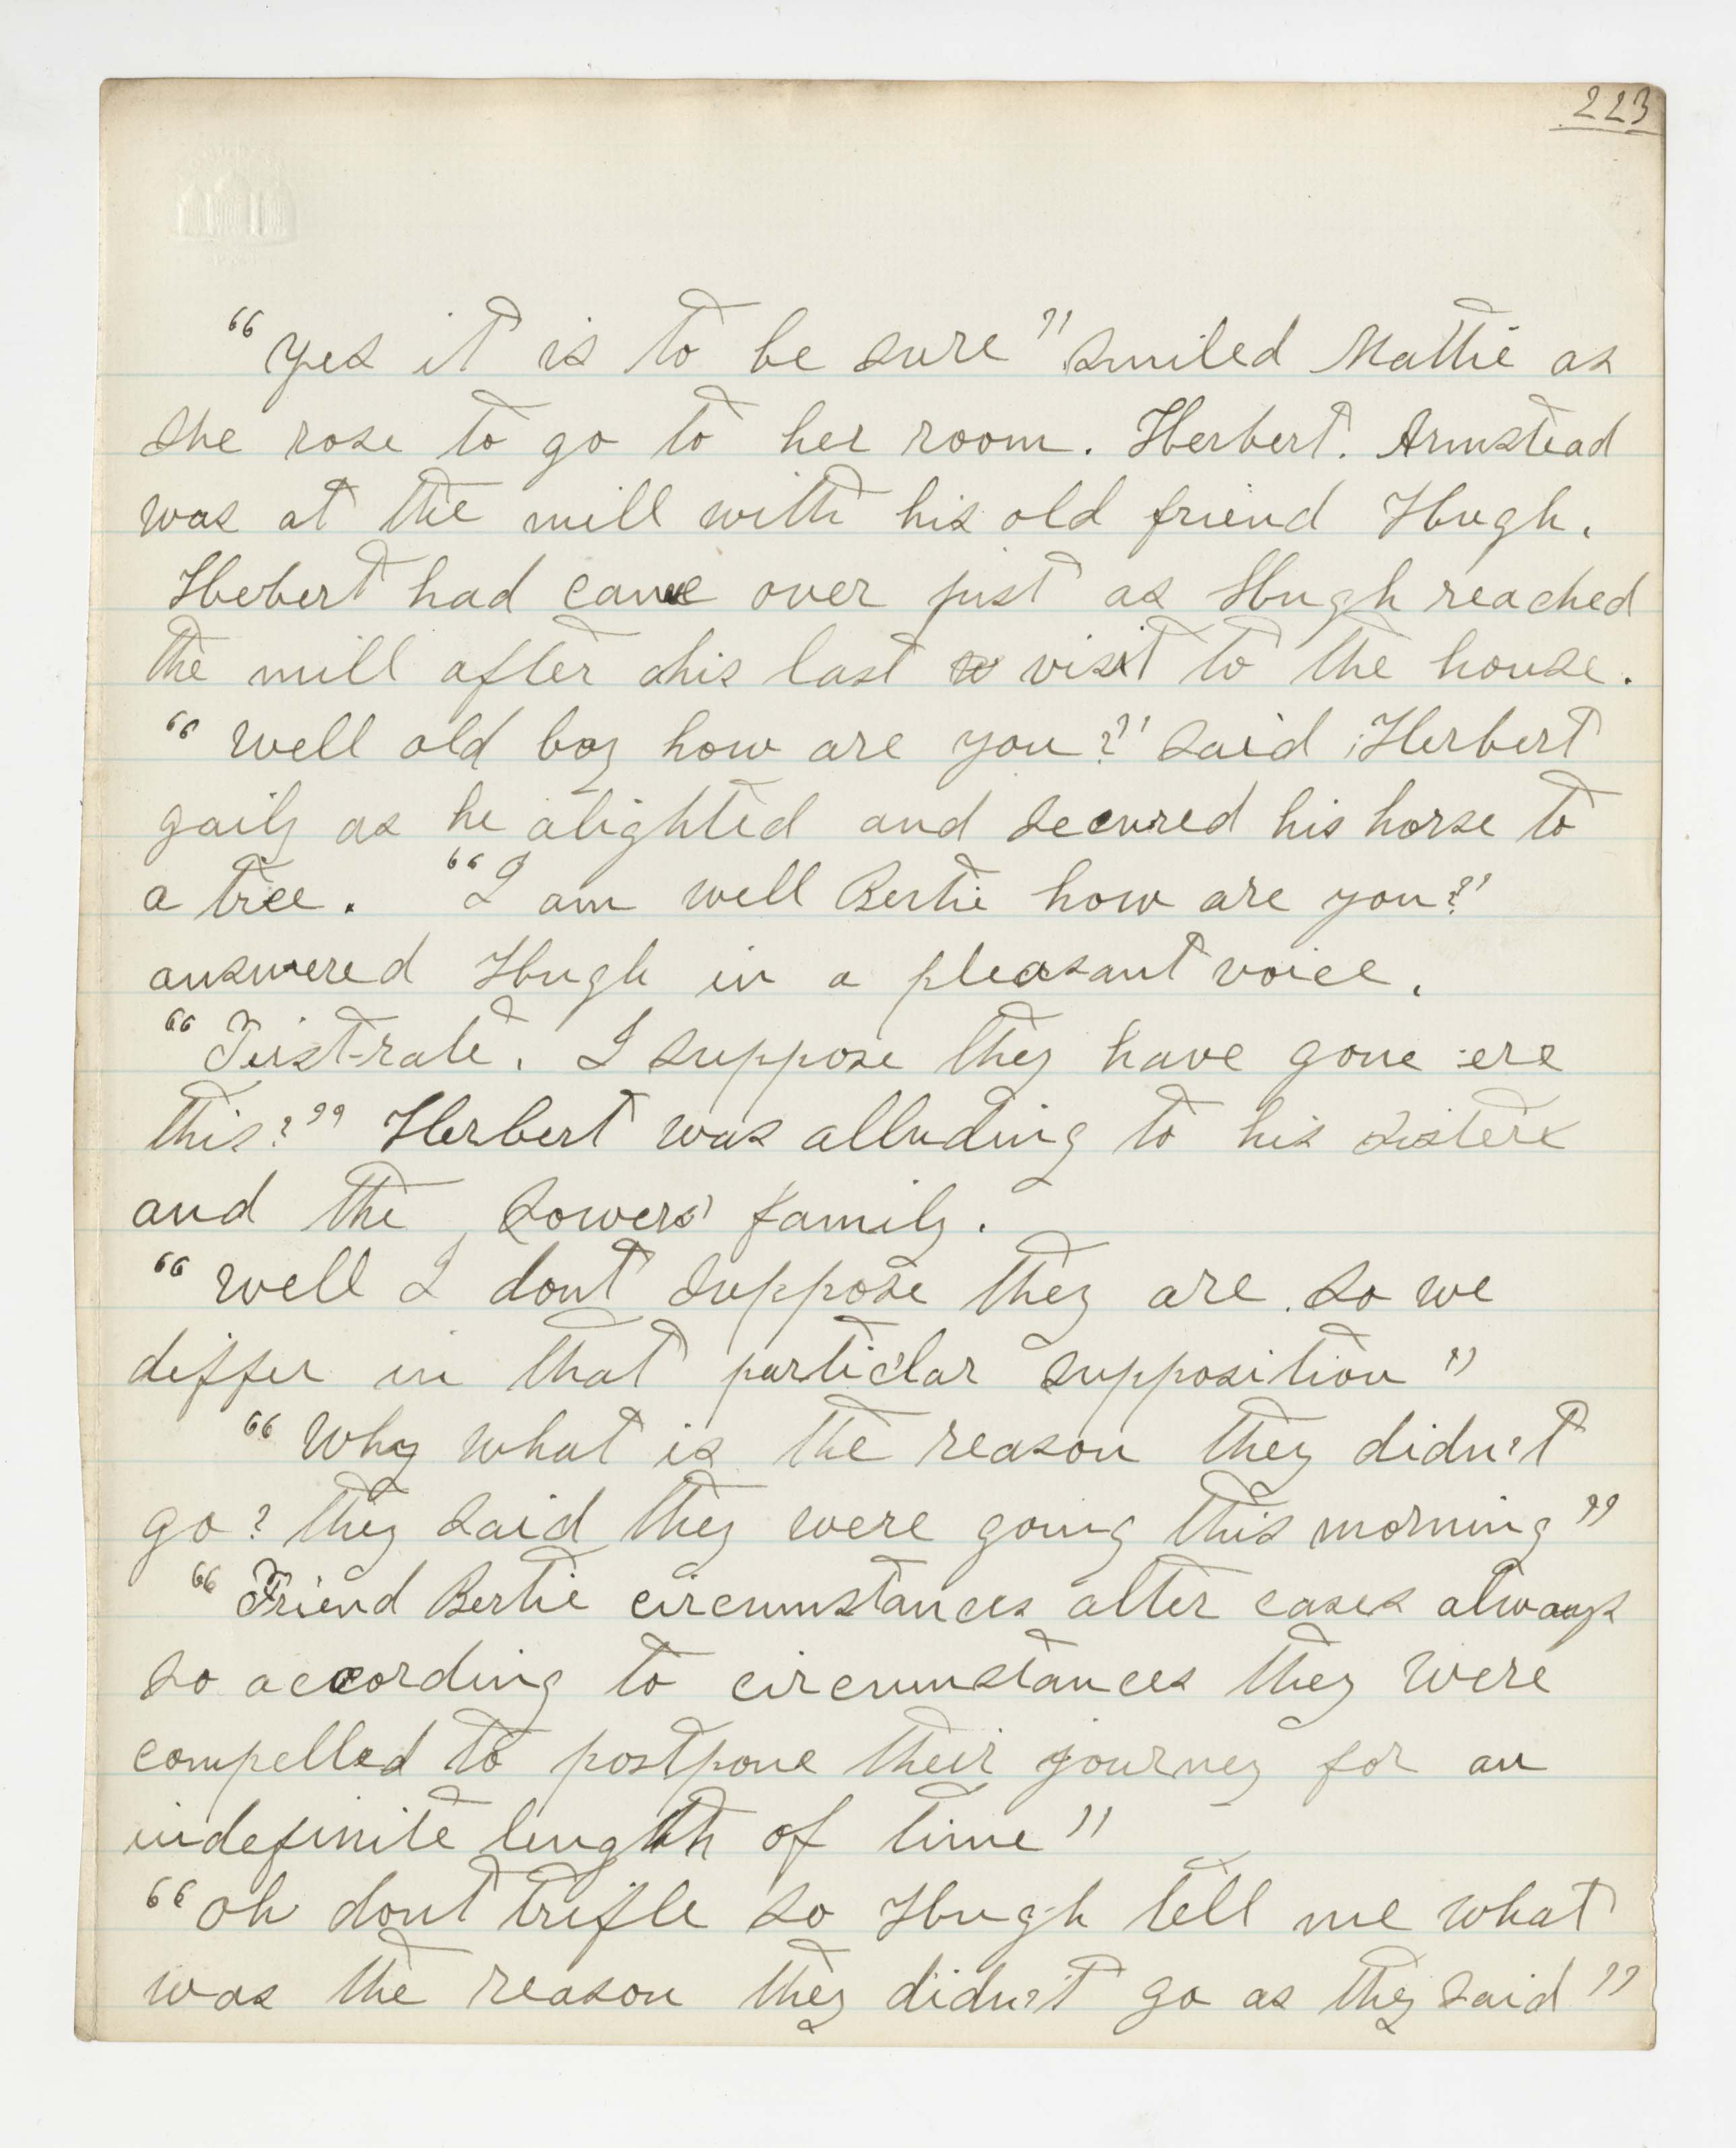 223
"Yes it is to be sure" smiled Mattie as
she rose to go to her room. Herbert. Armstead
was at the mill with his old friend Hugh.
Hebert had came over just as Hugh reached
the mill after his last visit to the house.
"Well old boy how are you?" said Herbert
gaily as he alighted and secured his horse to
a tree. "I am well Bertie how are you?"
answered Hugh in a pleasant voice.
"First-rate. I suppose they have gone ere
this?" Herbert was alluding to his sisters
and the Sowers' family.
"Well I dont suppose they are so we
differ in that partic'lar supposition"
"Why what is the reason they didn't
go? they said they were going this morning"
"Friend Bertie circumstances alter cases always
so according to circumstances they were
compelled to postpone their journey for an
indefinite length of time"
"Oh dont trifle so Hugh tell me what
was the reason they didn't go as they said"